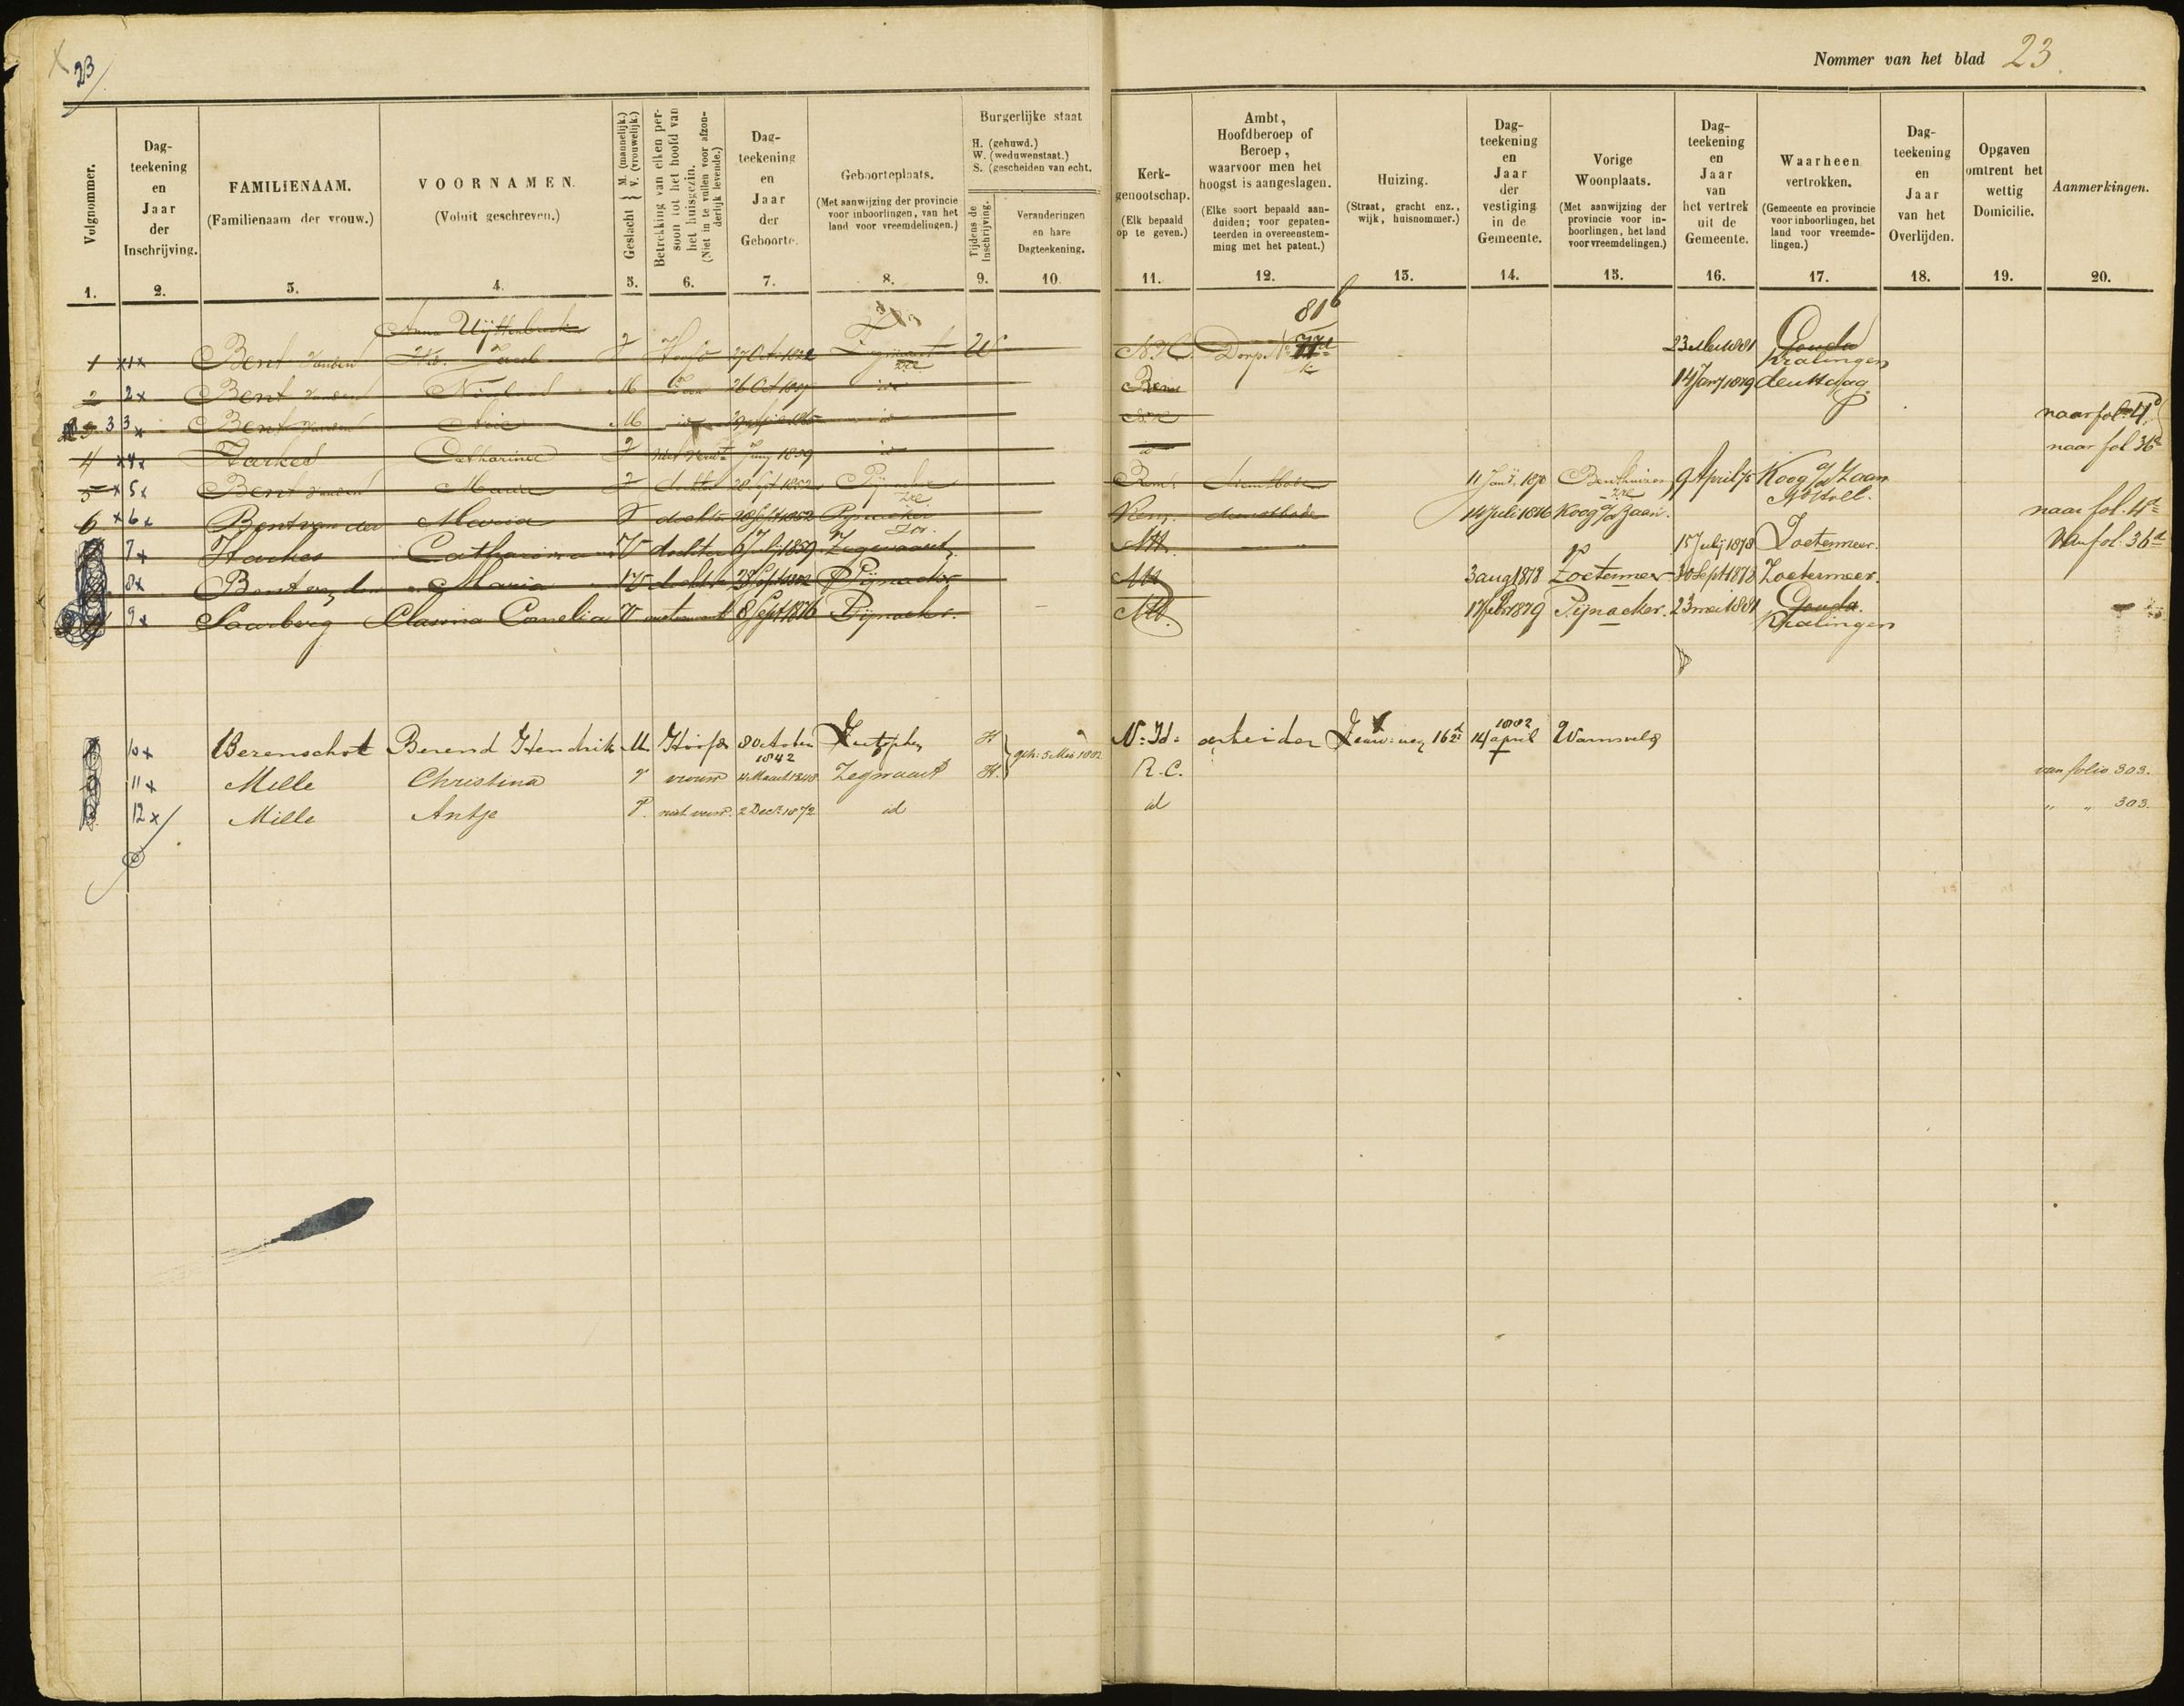 23
Nommer van het blad 23.
Volgnommer.
1.
Dag-
teekening
en
Jaar
der
Inschrijving.
2.
FAMILIENAAM.
(Familienaam der vrouw.)
3.
VOORNAMEN.
(Voluit geschreven.)
4.
Geslacht { M. (mannelijk.) V. (vrouwelijk.)
5.
Betrekking van elken per-
soon tot het hoofd van
het huisgezin.
(Niet in te vullen voor afzon-
derlijk levende.)
6.
Dag-
teekening
en
Jaar
der
Geboorte.
7.
Geboorteplaats.
(Met aanwijzing der provincie
voor inboorlingen, van het
land voor vreemdelingen.)
8.
Burgerlijke staat
H. (gehuwd.)
W. (weduwenstaat.)
S. (gescheiden van echt.
Tijdens de
Inschrijving.
9.
Veranderingen
en hare
Dagteekening.
10.
Kerk-
genootschap.
(Elk bepaald
op te geven.)
11.
Ambt,
Hoofdberoep of
Beroep,
waarvoor men het
hoogst is aangeslagen.
(Elke soort bepaald aan-
duiden; voor gepaten-
teerden in overeenstem-
ming met het patent.)
12.
Huizing.
(Straat, gracht enz.,
wijk, huisnommer.)
13.
Dag-
teekening
en
Jaar
der
vestiging
in de
Gemeente.
14.
Vorige
Woonplaats.
(Met aanwijzing der
provincie voor in-
boorlingen, het land
voor vreemdelingen.)
15.
Dag-
teekening
en
Jaar
van
het vertrek
uit de
Gemeente.
16.
Waarheen
vertrokken.
(Gemeente en provincie
voor inboorlingen, het
land voor vreemde-
lingen.)
17.
Dag-
teekening
en
Jaar
van het
Overlijden.
18.
Opgaven
omtrent het
wettig
Domicilie.
19.
Aanmerkingen.
20.
Anna Uijttenbroek 81b
1 x1x Bent van den Jacob Hoofd W N.H. Dorp No 23 Mei 1881 Gouda Kralingen
2 2x Bent van den M 26 Oct Rem 14 Jany 1879 den Haag
3 3x Bent van den Arie M id naar fol 4d
4 x4x Harkes Catharina Juny 1859 id id naar fol 36d
5 x5x Bent van den Maria dochter 28 Sept 1852 dienstbode 11 Jan. Benthuizen 9 April 75 Koog a/d Zaan
6 x6x Bent van der Maria V dochter 28 Sept 1852 Pijnacker Rem. dienstbode 14 Juli 1876 Koog a/d Zaan. naar fol. 4d
7x Harkes Catharina V dochter Julij 1859 Zegwaart NH. 15 Julij 1878 Zoetermeer. Van fol. 36d
8x Bent van den Maria V dochter 28 Sept 1852 Pijnacker NH 3 aug 1878 Zoetermeer 30 Sept 1878 Zoetermeer.
9x Saarberg Clasina Cornelia V 8 Sept 1876 Pijnacker. NH. 17 febr 1879 Pijnacker. 23 mei 1881 Gouda. Kralingen
10x Berenschot Berend Hendrik M Hoofd 8 October 1842 Zutphen H geh: 5 Mei 1882 N: H: arbeider 14 april 1882 Warnsveld
11x Mille Christina V vrouw Maart 1848 Zegwaart H. R.C. van folio 303.
12x Mille Antje V. niet verw. 2 Dec. 1872 id id " " 303.